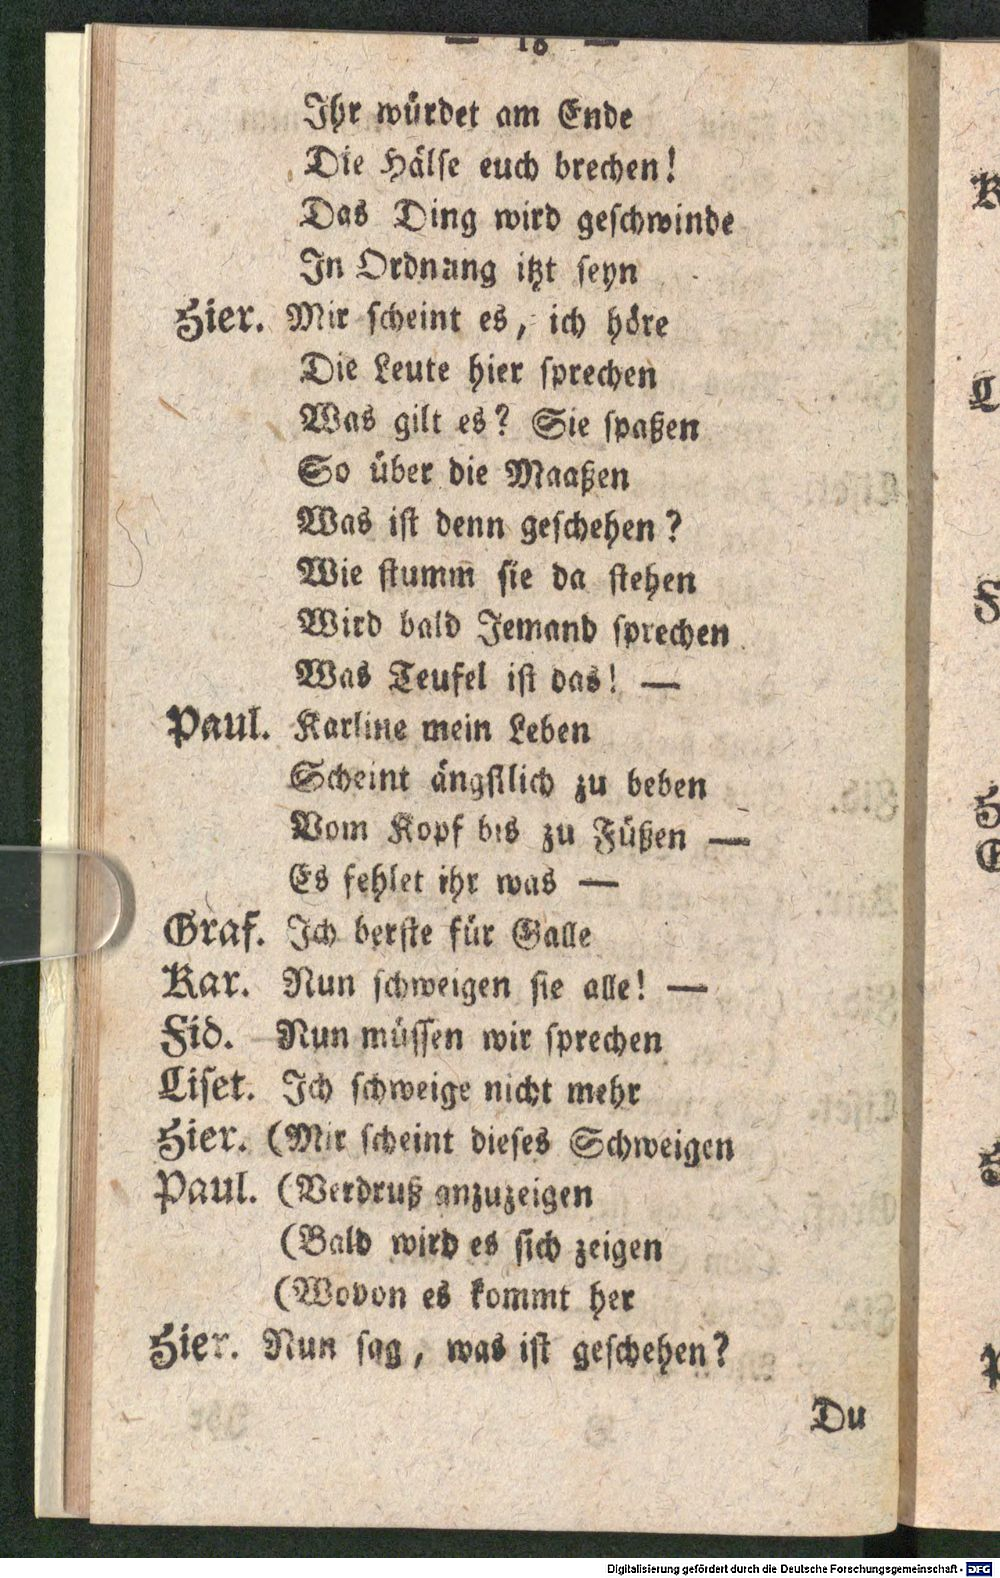 — 18 —
Ihr würdet am Ende
Die Hälſe euch brechen!
Das Ding wird geſchwinde
In Ordnung itzt ſeyn
Hier. Mir ſcheint es, ich höre
Die Leute hier ſprechen
Was gilt es? Sie ſpaßen
So über die Maaßen
Was iſt denn geſchehen?
Wie ſtum̄ ſie da ſtehen
Wird bald Jemand ſprechen
Was Teufel iſt das! —
Paul. Karline mein Leben
Scheint ängſtlich zu beben
Vom Kopf bis zu Füßen —
Es fehlet ihr was —
Graf. Ich berſte für Galle
Kar. Nun ſchweigen ſie alle! —
Fid. Nun müſſen wir ſprechen
Liſet. Ich ſchweige nicht mehr
Hier. (Mir ſcheint dieſes Schweigen
Paul. (Verdruß anzuzeigen
(Bald wird es ſich zeigen
(Wovon es kommt her
Hier. Nun ſag, was iſt geſchehen?
Du
Digitalisierung gefördert durch die Deutsche Forschungsgemeinschaft - DFG